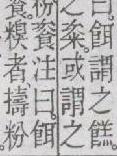 曰。餌謂之餻。
之粢或謂之
粉餈注曰餌
糗者擣粉